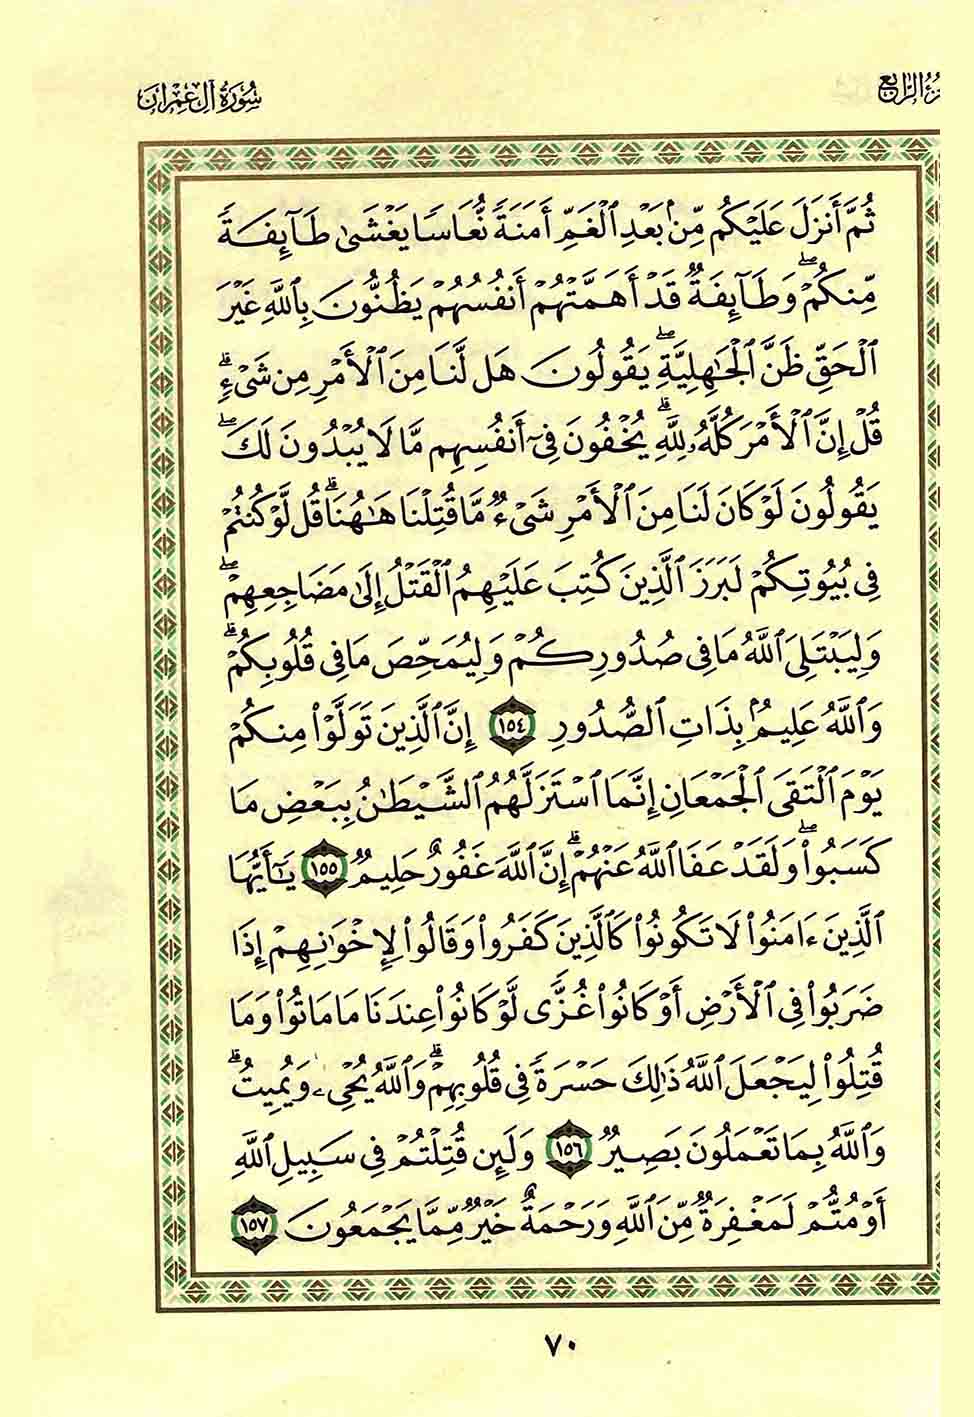 سُورَةُ آلِ عِمْرَانَ
الرَّابِعُ
ثُمَّ أَنزَلَ عَلَيْكُم مِّنۢ بَعْدِ ٱلْغَمِّ أَمَنَةً نُّعَاسًا يَغْشَىٰ طَآئِفَةً
مِّنكُمْ ۖ وَطَآئِفَةٌ قَدْ أَهَمَّتْهُمْ أَنفُسُهُمْ يَظُنُّونَ بِٱللَّهِ غَيْرَ
ٱلْحَقِّ ظَنَّ ٱلْجَٰهِلِيَّةِ ۖ يَقُولُونَ هَل لَّنَا مِنَ ٱلْأَمْرِ مِن شَىْءٍ ۗ
قُلْ إِنَّ ٱلْأَمْرَ كُلَّهُۥ لِلَّهِ ۗ يُخْفُونَ فِىٓ أَنفُسِهِم مَّا لَا يُبْدُونَ لَكَ ۖ
يَقُولُونَ لَوْ كَانَ لَنَا مِنَ ٱلْأَمْرِ شَىْءٌ مَّا قُتِلْنَا هَٰهُنَا ۗ قُل لَّوْ كُنتُمْ
فِى بُيُوتِكُمْ لَبَرَزَ ٱلَّذِينَ كُتِبَ عَلَيْهِمُ ٱلْقَتْلُ إِلَىٰ مَضَاجِعِهِمْ ۖ
وَلِيَبْتَلِىَ ٱللَّهُ مَا فِى صُدُورِكُمْ وَلِيُمَحِّصَ مَا فِى قُلُوبِكُمْ ۗ
وَٱللَّهُ عَلِيمٌۢ بِذَاتِ ٱلصُّدُورِ ١٥٤ إِنَّ ٱلَّذِينَ تَوَلَّوْا۟ مِنكُمْ
يَوْمَ ٱلْتَقَى ٱلْجَمْعَانِ إِنَّمَا ٱسْتَزَلَّهُمُ ٱلشَّيْطَٰنُ بِبَعْضِ مَا
كَسَبُوا۟ ۖ وَلَقَدْ عَفَا ٱللَّهُ عَنْهُمْ ۗ إِنَّ ٱللَّهَ غَفُورٌ حَلِيمٌ ١٥٥ يَٰٓأَيُّهَا
ٱلَّذِينَ ءَامَنُوا۟ لَا تَكُونُوا۟ كَٱلَّذِينَ كَفَرُوا۟ وَقَالُوا۟ لِإِخْوَٰنِهِمْ إِذَا
ضَرَبُوا۟ فِى ٱلْأَرْضِ أَوْ كَانُوا۟ غُزًّى لَّوْ كَانُوا۟ عِندَنَا مَا مَاتُوا۟ وَمَا
قُتِلُوا۟ لِيَجْعَلَ ٱللَّهُ ذَٰلِكَ حَسْرَةً فِى قُلُوبِهِمْ ۗ وَٱللَّهُ يُحْىِۦ وَيُمِيتُ ۗ
وَٱللَّهُ بِمَا تَعْمَلُونَ بَصِيرٌ ١٥٦ وَلَئِن قُتِلْتُمْ فِى سَبِيلِ ٱللَّهِ
أَوْ مُتُّمْ لَمَغْفِرَةٌ مِّنَ ٱللَّهِ وَرَحْمَةٌ خَيْرٌ مِّمَّا يَجْمَعُونَ ١٥٧
٧٠